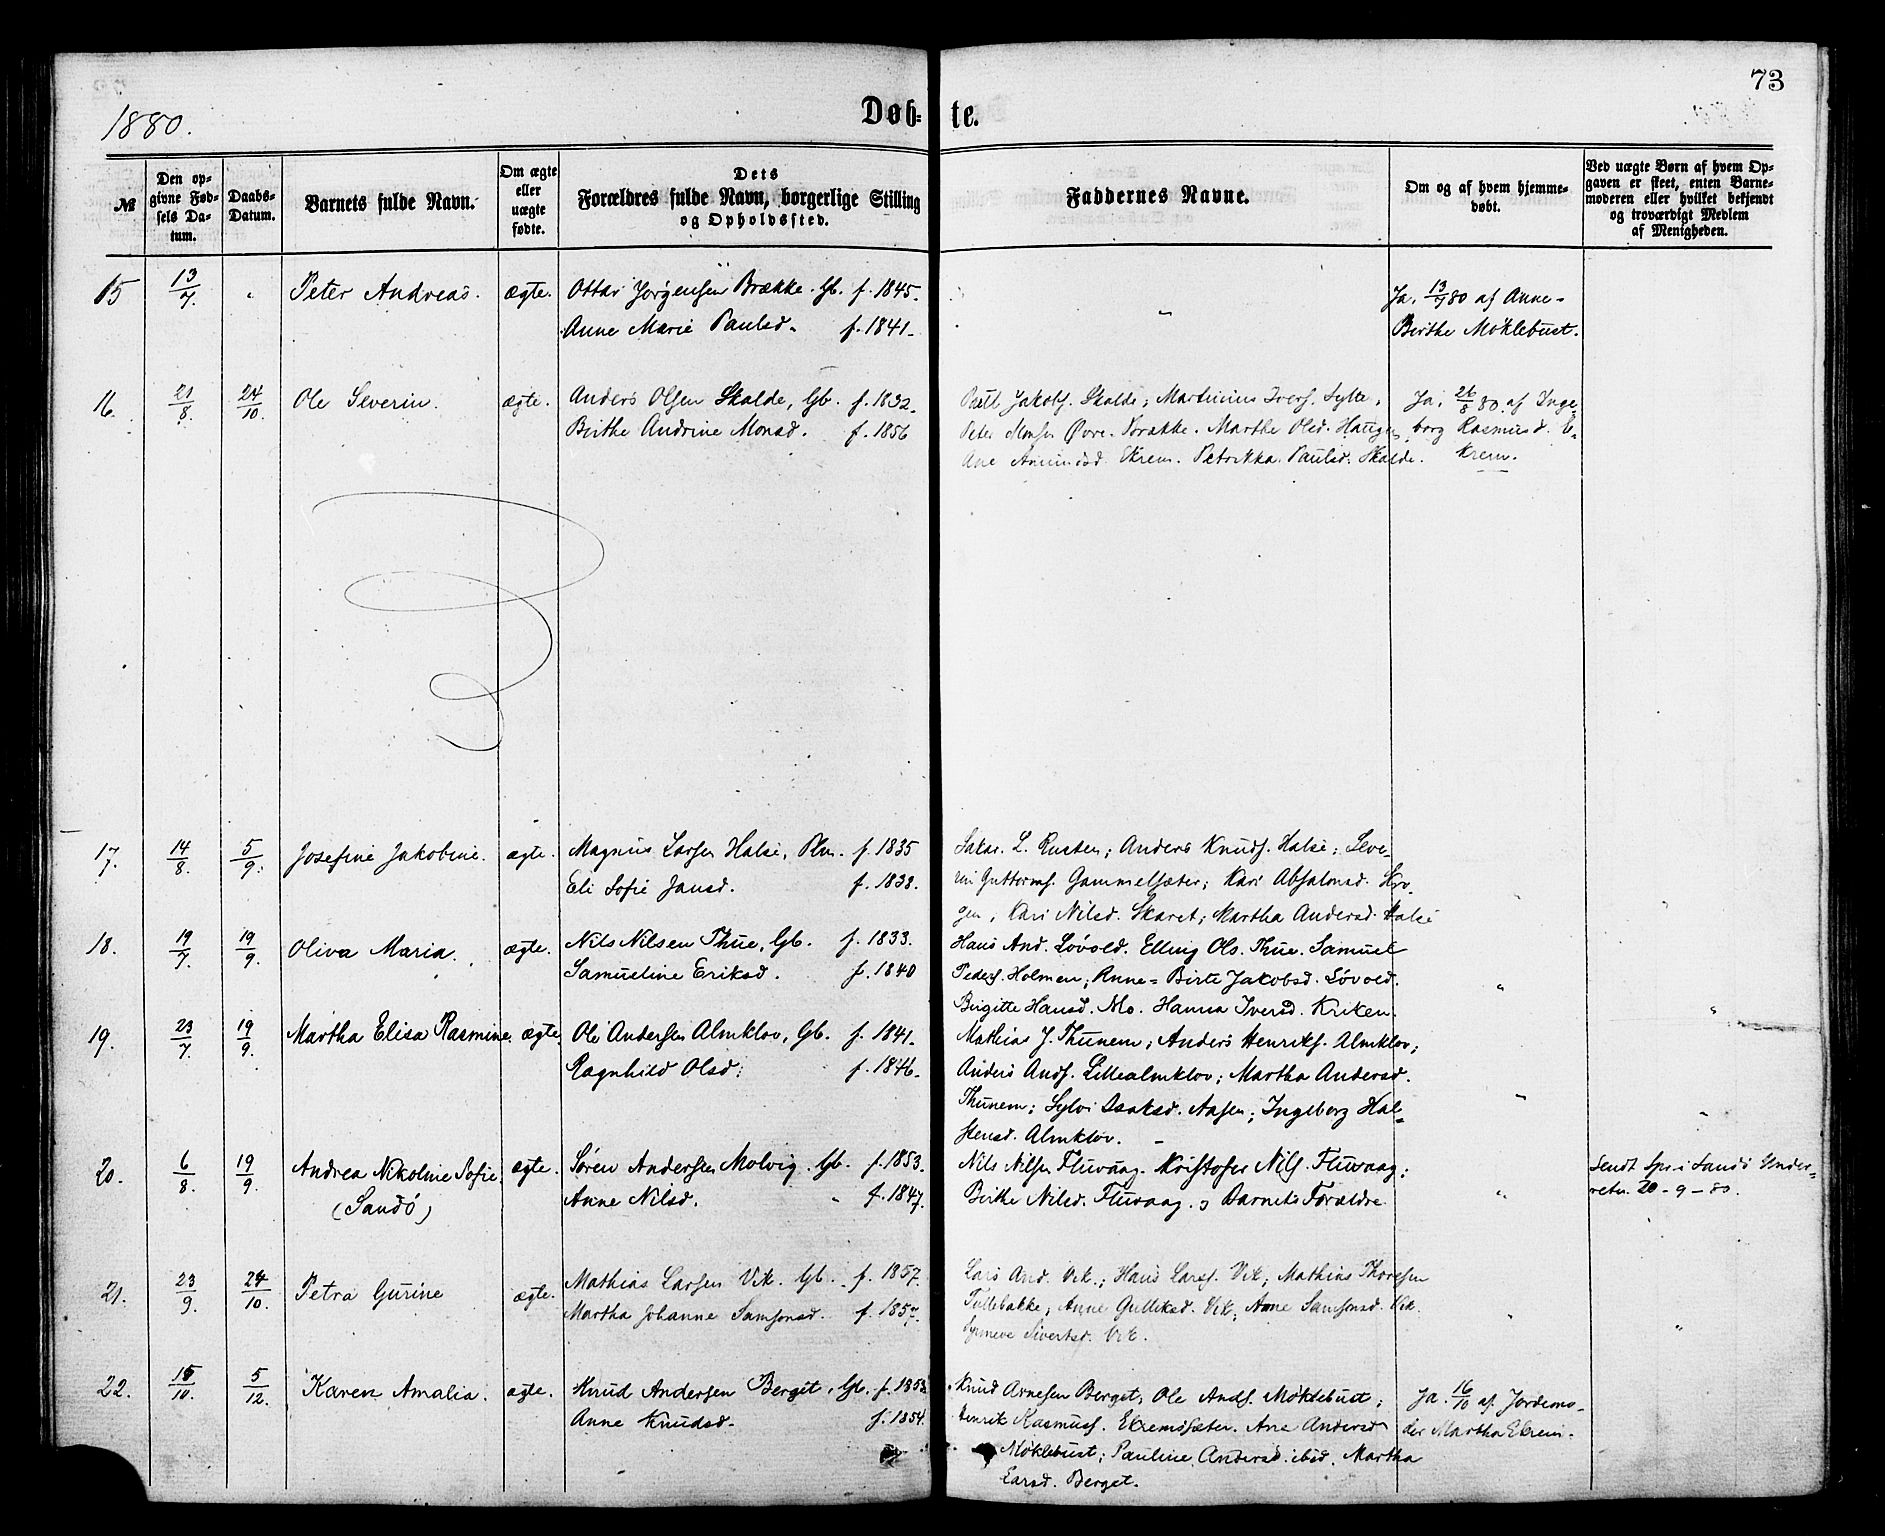 73
1880.
Døb= te.
№
Den op-
givne Fød-
sels Da-
tum.
Daabs-
Datum.
Barnets fulde Navn.
Om ægte
eller
uægte
fødte.
Dets
Forældres fulde Navn, borgerlige Stilling
og Opholdssted.
Faddernes Navne.
Om og af hvem hjemme-
døbt.
Ved uægte Børn af hvem Op-
gaven er skeet, enten Barne-
moderen eller hvilket bekjendt
og troværdigt Medlem
af Menigheden.
15 13/7. " Peter Andreas. ægte. Ottar Jørgensen Brække. Gb. f. 1845. " Ja. 13/7 80 af Anne-
Anne Marie Paulsd. f. 1841. Birthe Möklebust.
16. 21/8. 24/10. Ole Severin. ægte. Anders Olsen Skalde, Gb. f. 1832. Jakobs. Skalde; Martinius Ivers. Sylte; Ja; 26/8 80. af Inge-
Birthe Andrine Monsd. f. 1856 Peter Monsen Øvre-Brække. Marthe Olsd. Haugen borg Rasmusd. E-
Ane Amundsd. Ekrem. Petrikka Paulsd. Skalde. krem.
17. 14/8. 5/9. Josefine Jakobine. ægte. Magnus Larsen Halsé, Plm. f. 1835 Sakar. L. Rusten; Anders Knuds. Halsé; Seve-
Eli Sofie Jansd. f. 1838. rin Guttorms. Gammelsæter; Kari Absalonsd. Kro-
gen, Kari Nilsd. Skaret; Martha Andersd. Halsé "
18. 19/7. 19/9. Oliva Maria. ægte. Nils Nilsen Thue, Gb. f. 1833. Hans And. Løvold. Elling Ols. Thue. Samuel
Samueline Eriksd. f. 1840 Peders. Holmen; Anne-Birte Jakobsd. Løvold. "
Birgitte Hansd. Mo. Hanna Iversd. Kriken. "
19. 23/7. 19/9. Martha Elisa Rasmine. ægte. Ole Andersen Almklov, Gb. f. 1841. Mathias J. Thunem; Anders Henriks. Almklov;
Ragnhild Olsd. f. 1846. Anders Ands. Lillealmklov; Martha Andersd.
Thunem; Sylvi Isaksd. Aasen; Ingeborg Hal- "
stensd. Almklov. "
20. 6/8. 19/9. Andrea Nikoline Sofie. ægte. Søren Andersen Molvig. Gb. f. 1853. Nils Nilsen Fluvaag. Kristofer Nils. Fluvaag; Sendt Spr. i Sandö Under-
(Sandö) Anne Nilsd. " f. 1847. Birthe Nilsd. Fluvaag. og Barnets Forældre. " retn. 20-9-80.
21. 23/9. 24/10. Petra Gurine ægte. Mathias Larsen Vik. Gb. f. 1857. Lars And. Vik.; Hans Lars. Vik; Mathias Thoresen
Martha Johanne Samsonsd. f. 1857. Tullebakke; Anne Gulliksd. Vik; Anne Samsonsd. Vik. "
Synneve Sivertsd. Vik. "
22. 15/10. 5/12. Karen Amalia. ægte. Knud Andersen Berget, Gb. f. 1853 Knud Arnesen Berget; Ole Ands. Möklebust; Ja. 16/10 af Jordemo-
Anne Knudsd. f. 1854. Henrik Rasmuss. Ekremssæter. Ane Andersd der Martha Ekrem.
Möklebust; Pauline Andersd. ibid. Martha
Larsd. Berget.